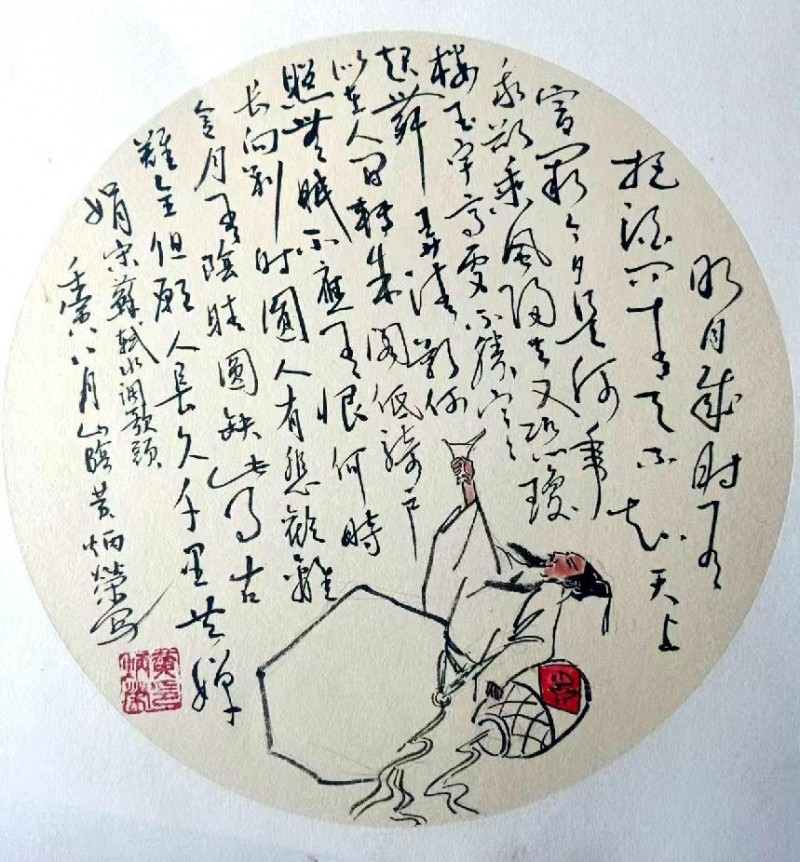 明月幾时有
把酒问青天不知天上
宫闕今夕是何年
我欲乘風归去又恐瓊
楼玉宇高处不勝寒
起舞弄清影何
似在人间轉朱阁低绮户
照無眠不應有恨何時
长向别时圓人有悲歡離
合月有陰晴圓缺此事古
難全但願人長久千里共嬋
娟 宋蘇軾水调歌頭
八月山陰黄炳榮写